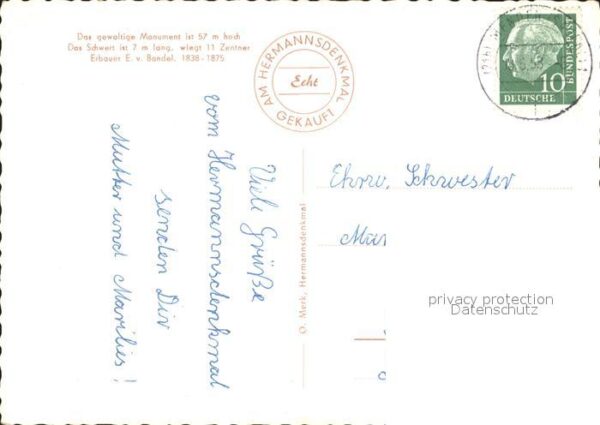 Das gewaltige Monument ist 57 m hoch
Das Schwert ist 7 m lang, wiegt 11 Zentner
Erbauer E. v. Bandel. 1838-1875
AM HERMANNSDENKMAL
Echt
GEKAUFT
10
DEUTSCHE
BUNDESPOST
Viele Grüße
vom Hermannsdenkmal
senden Dir
Mutter und Marilies!
O. Merk, Hermannsdenkmal
Ehrw. Schwester
privacy protection
Datenschutz